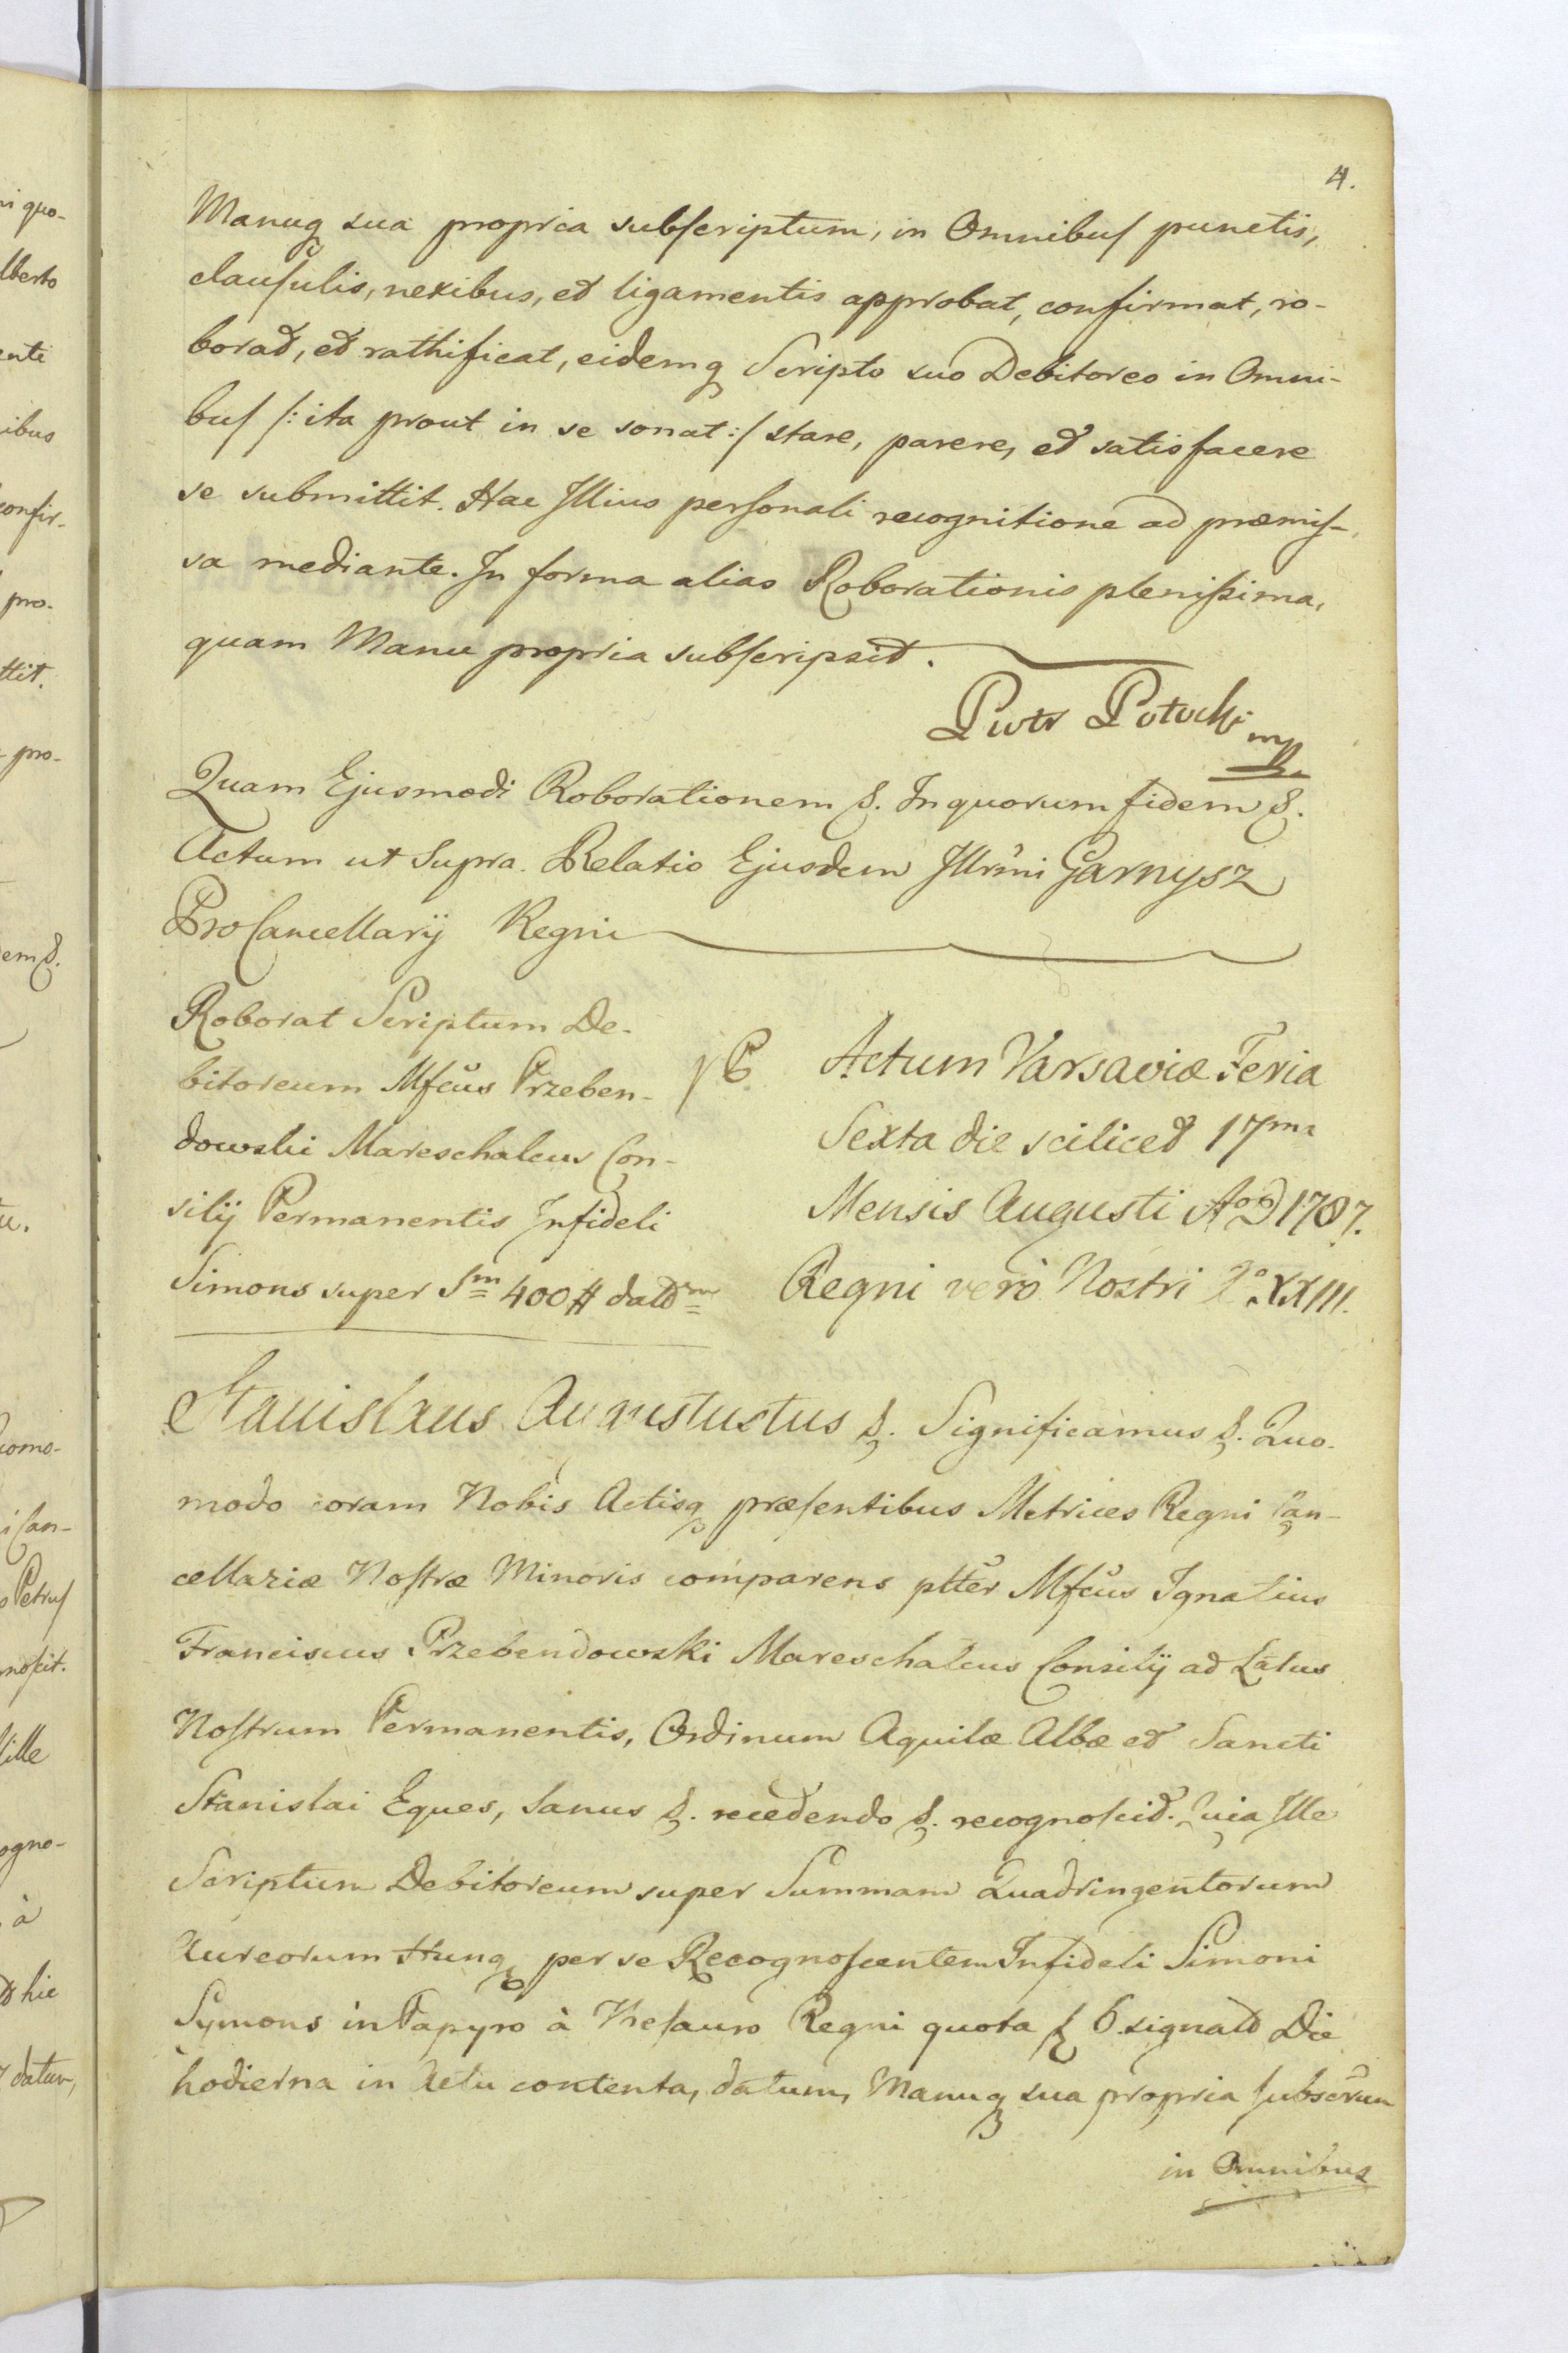 4.
Manuq sua propria subscriptum, in Omnibus punctis,
clausulis, nexibus, et ligamentis approbat, confirmat, ro-
borat, et rathificat, eidemq Scripto suo Debitoreo in Omni-
bus /: ita prout in se sonat :/ stare, parere, et satisfacere
se submittit. Hac Illius personali recognitione ad præmis-
sa mediante. In forma alias Roborationis plenissima,
quam Manu propria subscripsit.
Piotr Potocki mp
Quam Ejusmodi Roborationem &. In quorum fidem &.
Actum ut Supra. Relatio Ejusdem Illrmi Garnysz
ProCancellarij Regni
Roborat Scriptum De-
bitoreum Mfcus Przeben-
dowski Mareschalcus Con-
silij Permanentis Infideli
Simons super Sm 400 # datm
Actum Varsaviæ Feria
Sexta die scilicet 17ma
Mensis Augusti AoD 1787.
Regni vero Nostri XXIII.
Stanislaus Augustustus &. Significamus &. Quo-
modo coram Nobis Actisq præsentibus Metrices Regni Can-
cellariæ Nostræ Minoris comparens pltter Mfcus Ignatius
Franciscus Przebendowski Mareschalcus Consilij ad Latus
Nostrum Permanentis, Ordinum Aquilæ Albæ et Sancti
Stanislai Eques, Sanus &. recedendo &. recognoscit. Quia Ille
Scriptum Debitoreum super Summam Quadringentorum
Aureorum Hung per se Recognoscentem Infideli Simoni
Symons in Papyro à Thesauro Regni quota f 6 signato Die
hodierna in Actu contenta, datum, Manuq sua propria subscrum
in Omnibus